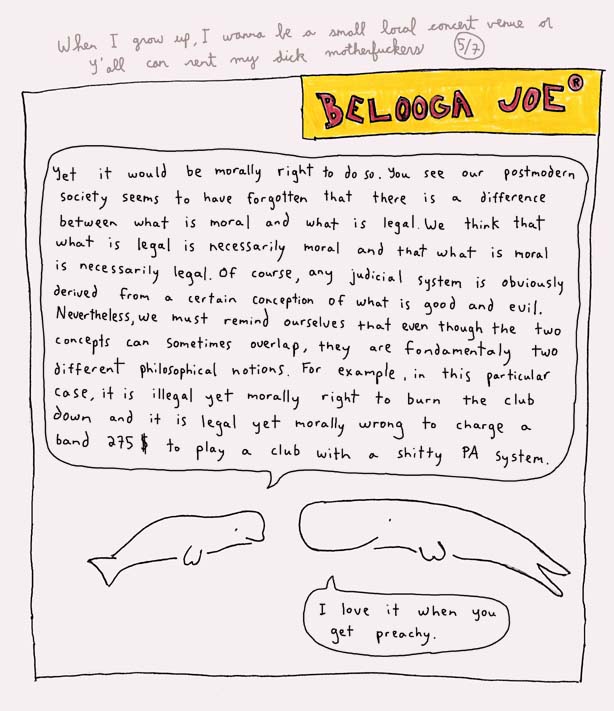 When I grow up, I wanna be a small local concert venue so
y'all can rent my dick motherfuckers 5/7
BELOOGA JOE®
Yet it would be morally right to do so. You see our postmodern
society seems to have forgotten that there is a difference
between what is moral and what is legal. We think that
what is legal is necessarily moral and that what is moral
is necessarily legal. Of course, any judicial system is obviously
derived from a certain conception of what is good and evil.
Nevertheless, we must remind ourselves that even though the two
concepts can sometimes overlap, they are fondamentaly two
different philosophical notions. For example, in this particular
case, it is illegal yet morally right to burn the club
down and it is legal yet morally wrong to charge a
band 275 $ to play a club with a shitty PA system.
I love it when you
get preachy.